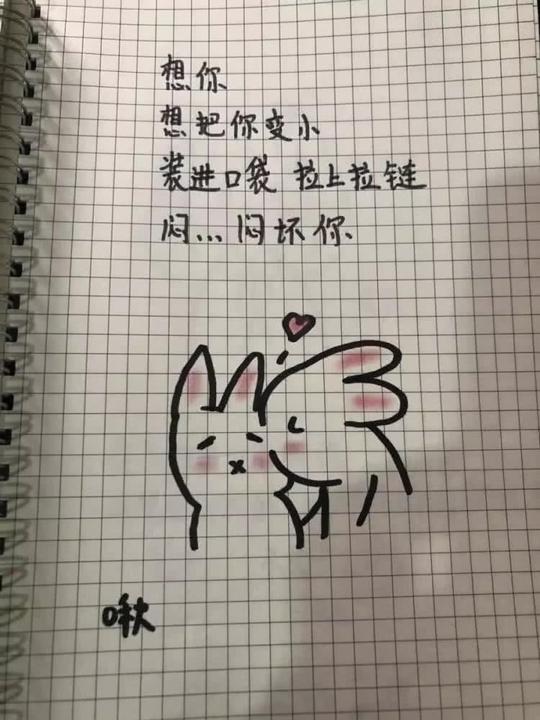 想你
想把你变小
装进口袋 拉上拉链
闷...闷坏你
啾